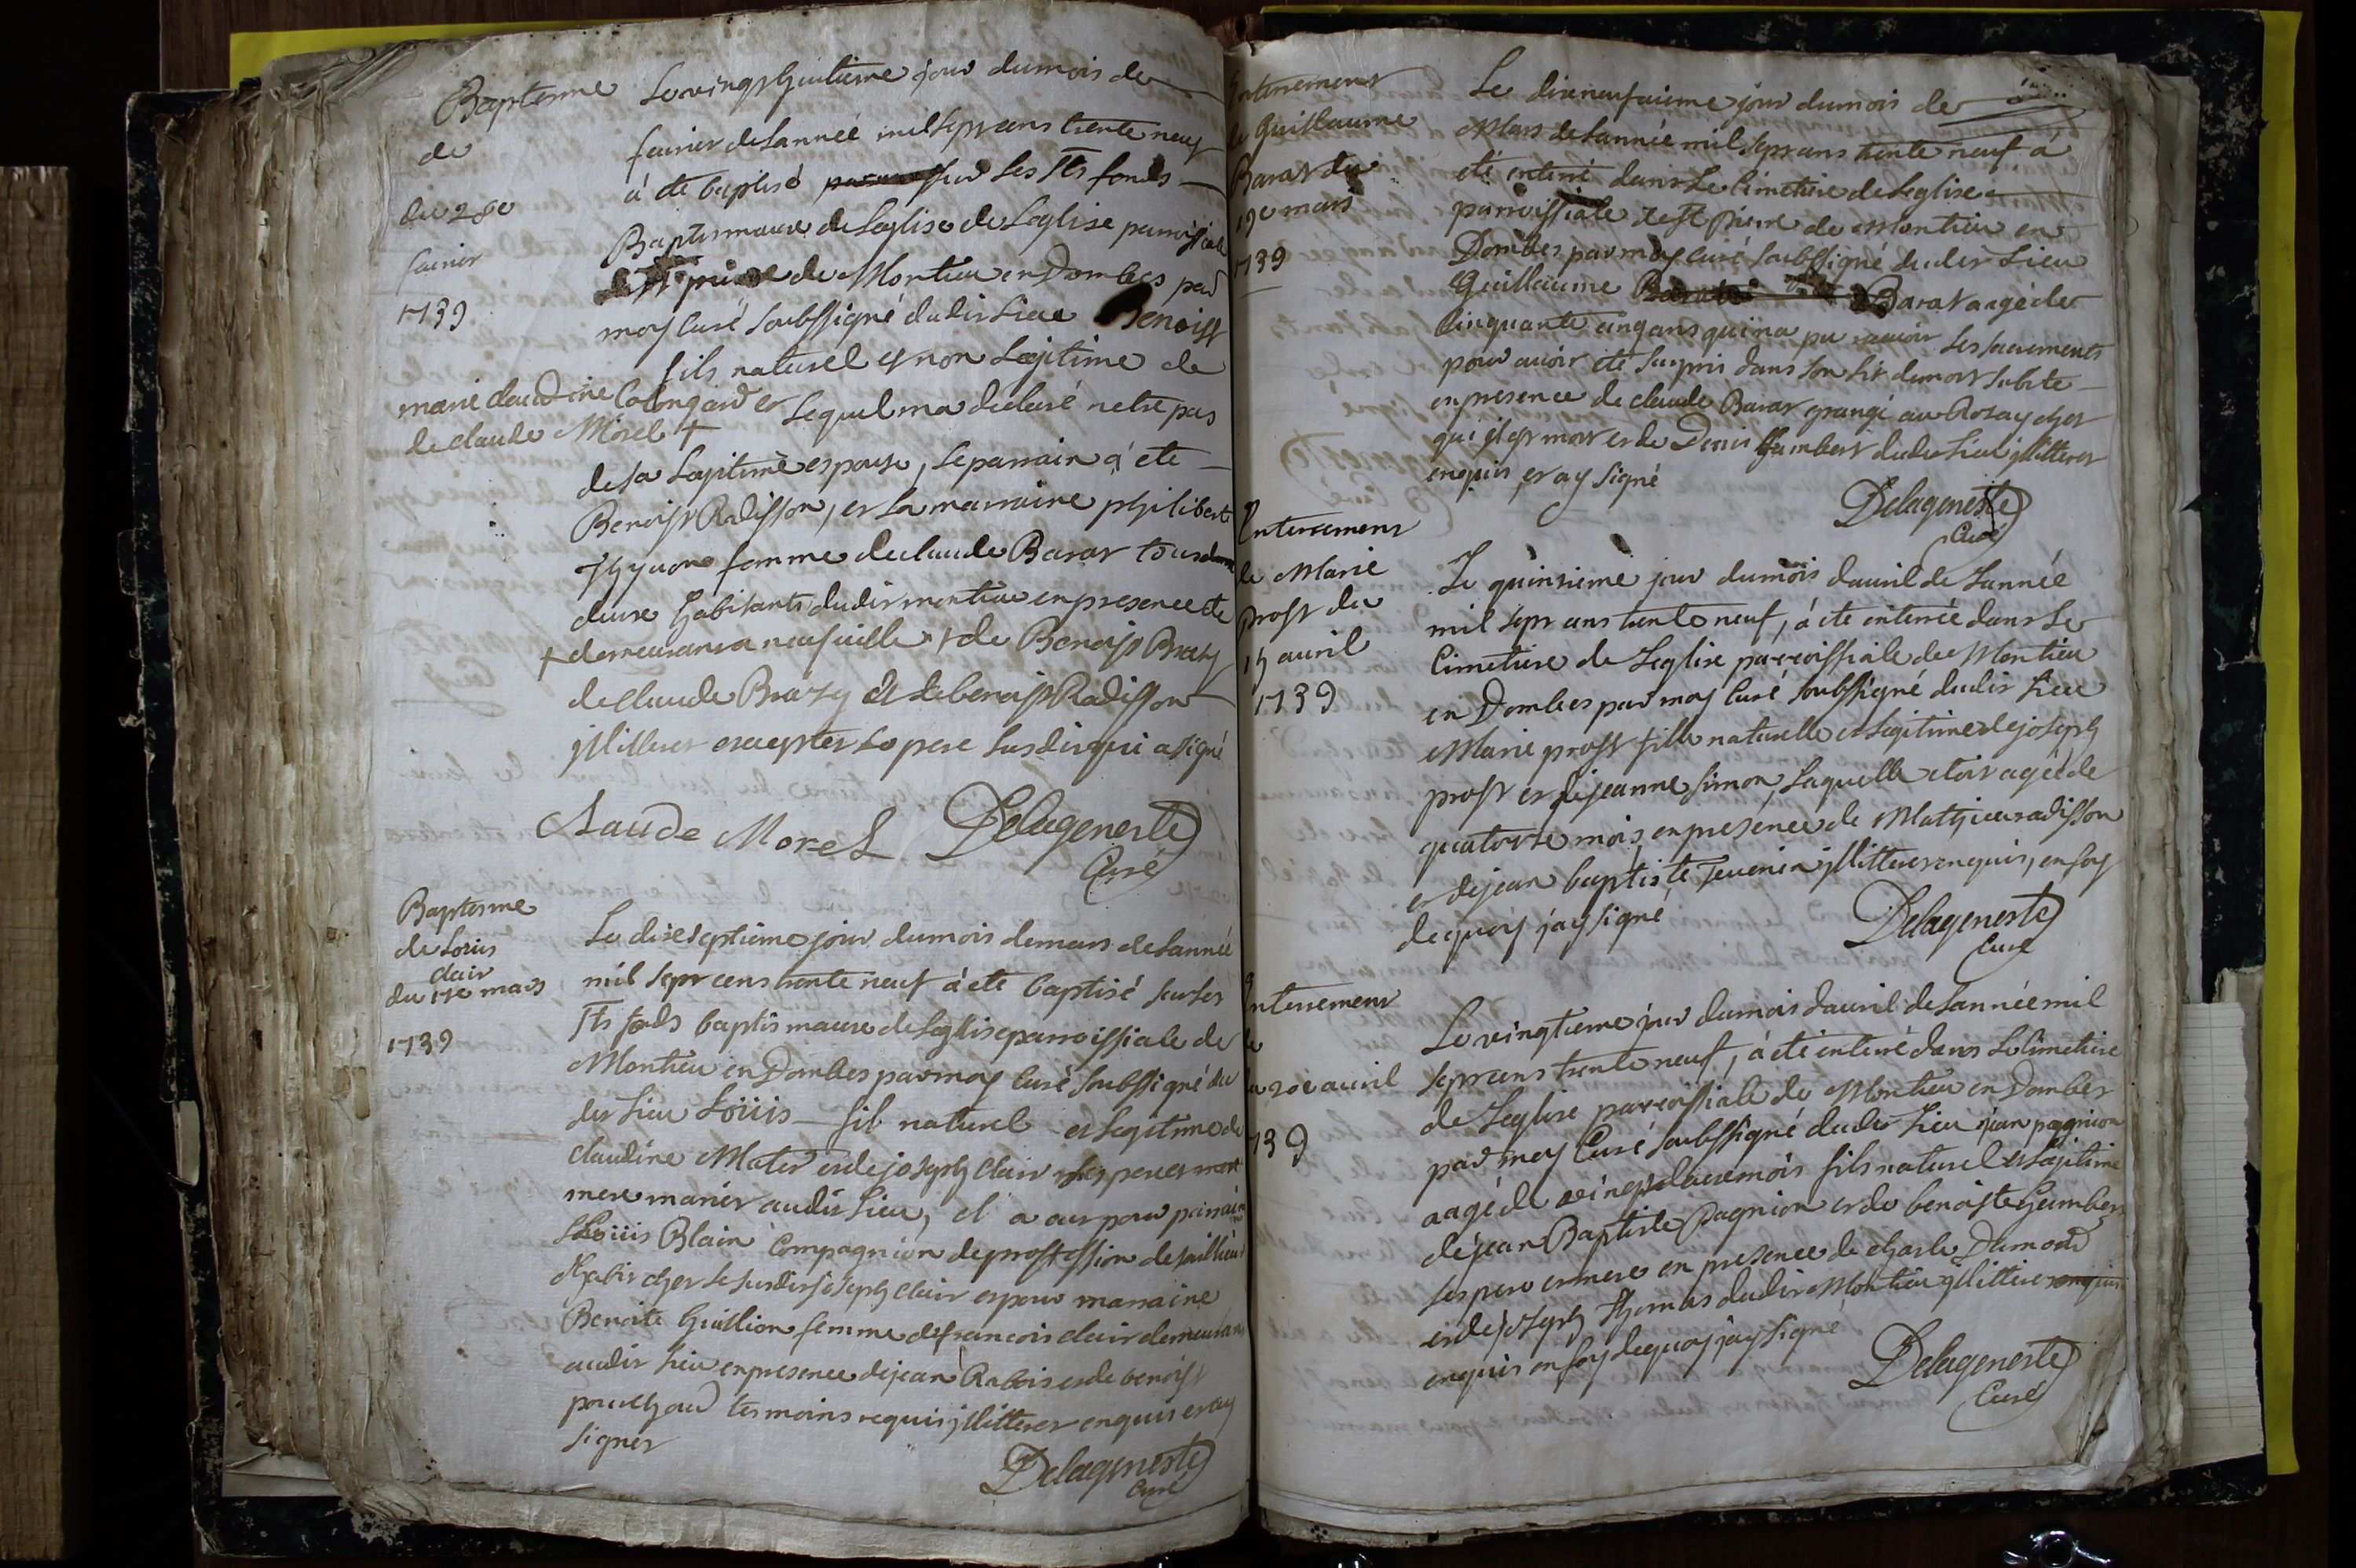 Baptesme
de
du 28e
feurier
1739
Le vingt huitieme jour du mois de
feurier de Lannéé mil sept cens trente neuf
à ete baptisé sur les Sts fonds
Baptismaux de Leglise de Leglise parroissiale
de Montieu en Dombes par
moy Curé soubssigné dudit Lieu Benoist
fils naturel et non Legitime de
marie claudine Colongard et Lequel ma declaré netre pas
de claude Morel +
de sa Legitime espouse, le parrain à ete
Benoist Radisson, et La marraine philiberte
femme de claude Barat tous
deux habitants dudit montieu en presence de
+ demeurant a neufuille + de Benoist Brazy
de Claude Brazy et de benoist Radisson
jllitteres exceptes Le pere susdit qui a signé
Claude Morel Delageneste
Curé
Baptesme
de Loüis
clair
du 17e mars
1739
Le dixseptieme jour du mois de mars de Lannéé
mil sept cens trente neuf à ete baptisé sur les
Sts fonds baptismaux de Leglise parroissiale de
Montieu en Dombes par moy Curé soubssigné du
dit Lieu Loüis fils naturel et Legitime de
claudine Mater et de joseph clair ses pere et
mere mariés audit Lieu, il a eut pour parrain
Loüis Blain Compagnion de profession de tailleur
habit chez le susdit joseph clair et pour marraine
Benoite Guillion femme de francois clair demeurant
audit Lieu en presence de jean Rabois et de benoist
pouchoud tesmoins requis jllitteres enquis et ay
signer
Delageneste
Curé
Enterrement
de Guillaume
Barat du
19e mars
1739
Le dixneufuieme jour du mois de
Mars de Lannéé mil sept cens trente neuf à
eté enterré dans Le Cimetiere de Leglise
parroissiale de St Pierre de Montieu en
Dombes par moy Curé soubssigné dudit Lieu
Guillaume Barat aagé de
Cinquante cinq ans qui na pu recevoir Les sacrements
pour auoir eté surpris dans son lit de mort subite
en presence de claude Barat grangé au Rosay chez
qui jl est mort et de Denis Humbert dudit Lieu jllitteres
enquis et ay signé
Delageneste
Curé
Enterrement
de Marie
prost du
15 auril
1739
Le quinzieme jour du mois dauril de Lannéé
mil sept cens trente neuf, à ete enterréé dans Le
Cimetiere de Leglise parroissiale de Montieu
en Dombes par moy Curé soubssigné dudit Lieu
Marie prost fille naturelle et Legitime de joseph
prost et de jeanne simon Laquelle etoit agéé de
quatorze mois, en presence de Mathieu radisson
et de jean baptiste Teuenin jllitteres enquis, en foy
de quoy jay signé
Delageneste
Curé
Enterrement
de
du 20e auril
1739
Le vingtieme jour du mois dauril de Lannéé mil
sept cens trente neuf, à eté enterré dans Le Cimetiere
de Leglise parroissiale de Montieu en Dombes
par moy Curé soubssigné dudit Lieu jean pagnion
aagé de vingt deux mois fils naturel et Legitime
de jean Baptiste Pagnion et de benoiste humbert
ses pere et mere en presence de charle Dumond
et de joseph Thomas dudit Montieu jllitteres enquis
enquis en foy de quoy jay signé
Delageneste
Curé